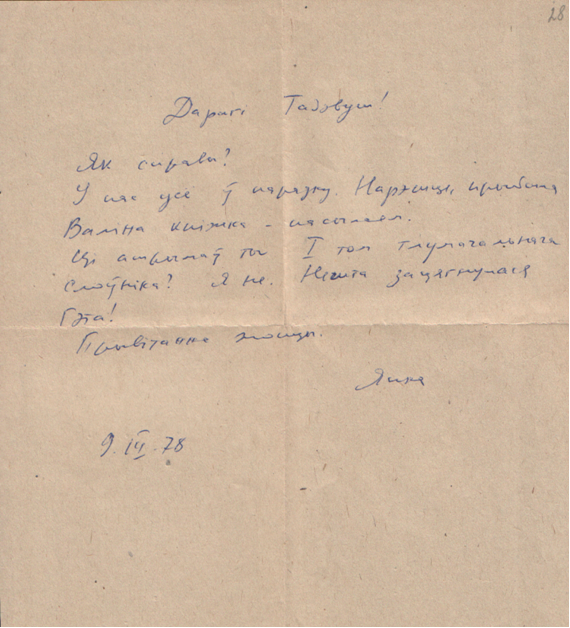 28
Дарагі Тадэвуш!
Як справы?
У нас усё ў парадку. Нарэшце, прыйшла
Валіна кніжка - пасылаем.
Ці атрымаў ты I том тлумачальнага
слоўніка? Я не. Нешта зацягнулася
гэта!
Прывітанне жонцы.
Янка
9.III.78